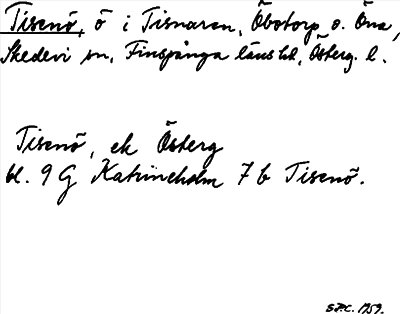 Tisenö, ö i Tisnaren, Öbotorp o. Öna,
Skedevi sn, Finspånga läns hd, Österg. l.
Tisenö, ek Österg
bl. 9 G Katrineholm 7 b Tisenö.
1959.